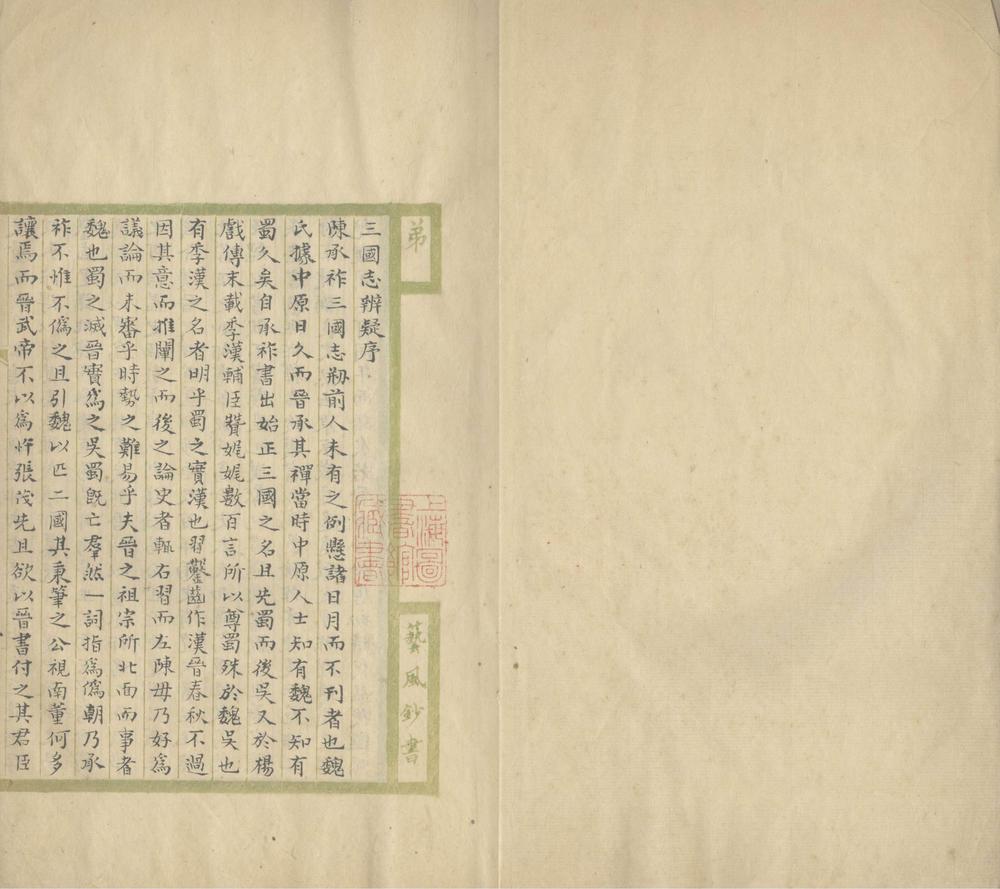 三國志辨疑序
陳承祚三國志刱前人未有之例懸諸日月而不刊者也魏
氏據中原日久而晉承其禪當時中原人士知有魏不知有
蜀久矣自承祚書出始正三國之名且先蜀而後吳又於楊
戲傳末載季漢輔臣贊娓娓數百言所以尊蜀殊於魏吳也
有季漢之名者明乎蜀之實漢也習鑿齒作漢晉春秋不過
因其意而推闡之而後之論史者輒右習而左陳毋乃好爲
議論而未審乎時勢之難易乎夫晉之祖宗所北面而事者
魏也蜀之滅晉實爲之吳蜀既亡羣然一詞指爲僞朝乃承
祚不惟不僞之且引魏以匹二國其秉筆之公視南董何多
讓焉而晉武帝不以爲忤張茂先且欲以晉書付之其君臣
弟
藝風鈔書
上海圖
書館
藏書